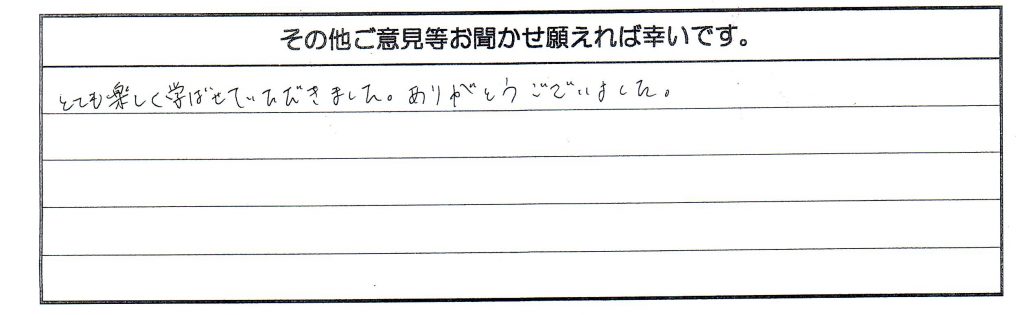 その他ご意見等お聞かせ願えれば幸いです。
とても楽しく学ばせていただきました。ありがとうございました。